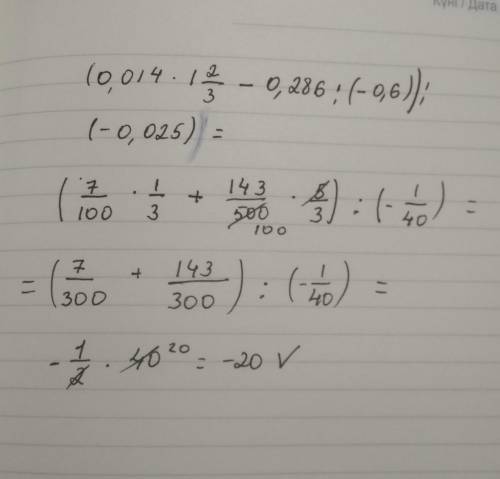 Күні / Дата
(0,014 · 1 2/3 − 0,286 : (−0,6)) :
(−0,025) =
(7/100 · 1/3 + 143/500 100 · 5/3) : (−1/40) =
= (7/300 + 143/300) : (−1/40) =
−1/2 · 40 20 = −20 ✓